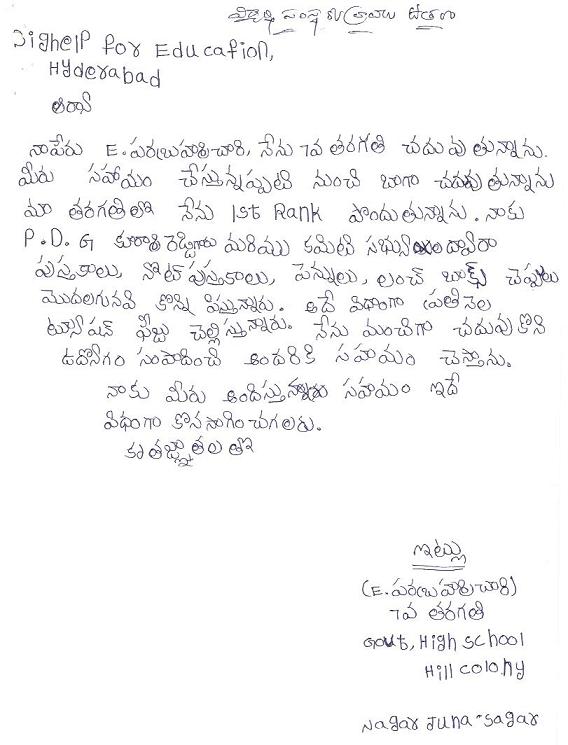 Sighelp for Education,
Hyderabad
నాపేరు E. , నేను 7వ తరగతి చదువుతున్నాను.
మీరు సహాయం చేస్తున్నప్పటి నుంచి బాగా చదువుతున్నాను
మా తరగతిలో నేను 1st Rank పొందుతున్నాను. నాకు
P.D.G రెడ్డిగారు మరియు కమిటి సభ్యుల ద్వారా
పుస్తకాలు, నోట్ పుస్తకాలు, పెన్నులు, లంచ్ బాక్స్ చెప్పులు
మొదలగునవి కొన్ని పిస్తున్నారు. అదే విధంగా ప్రతి నెల
ట్యూషన్ ఫీజు చెల్లిస్తున్నారు. నేను మంచిగా చదువుకొని
ఉద్యోగం సంపాదించి అందరికి సహాయం చేస్తాను.
నాకు మీరు అందిస్తున్న సహాయం ఇదే
విధంగా కొనసాగించగలరు.
కృతజ్ఞతలతో
ఇట్లు
7వ తరగతి
Govt, High school
Hill colony
Nagar Juna-sagar